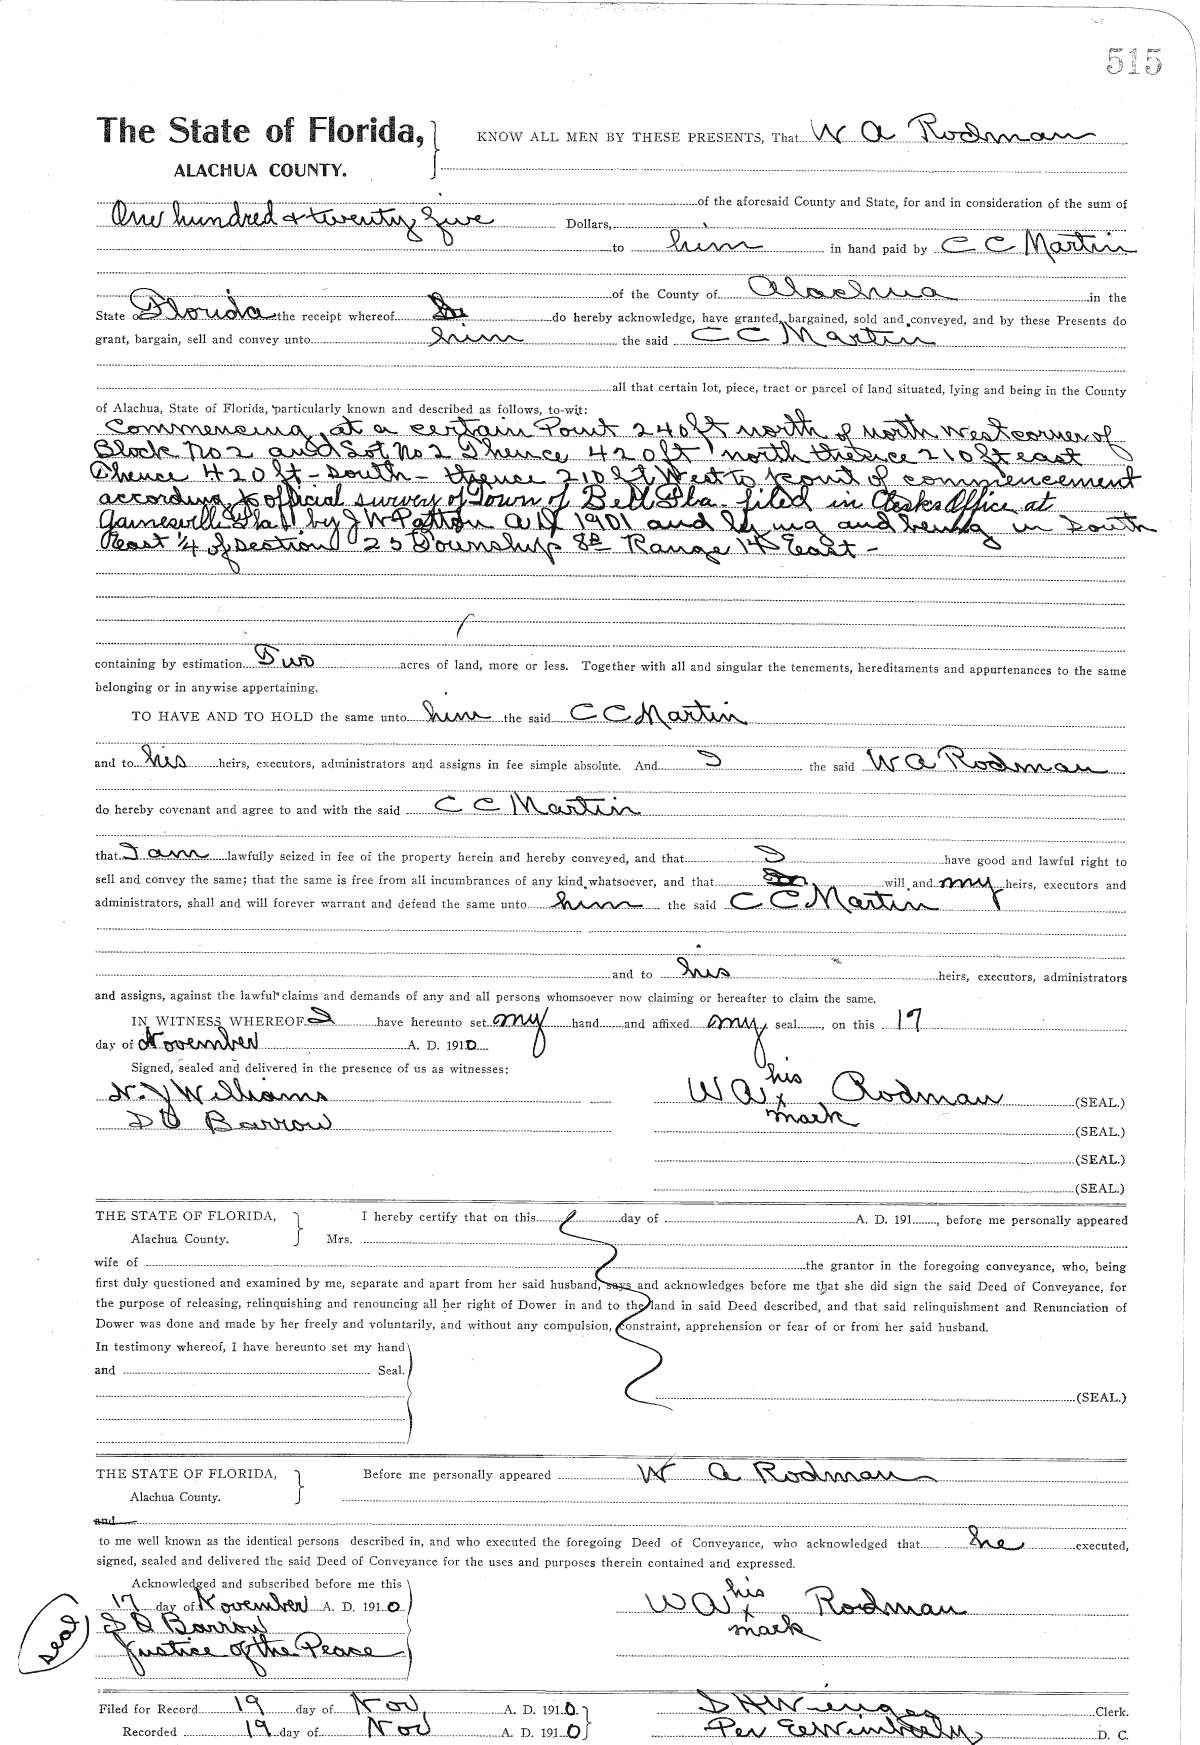 515
The State of Florida, KNOW ALL MEN BY THESE PRESENTS, That W A Rodman
ALACHUA COUNTY.
of the aforesaid County and State, for and in consideration of the sum of
One hundred & twenty five Dollars,
to him in hand paid by C C Martin
of the County of Alachua in the
State of Florida the receipt whereof do hereby acknowledge, have granted, bargained, sold and conveyed, and by these Presents do
grant, bargain, sell and convey unto him the said C C Martin
all that certain lot, piece, tract or parcel of land situated, lying and being in the County
of Alachua, State of Florida, particularly known and described as follows, to-wit:
Commencing at a certain Point 240 ft north of north West corner of
Block No 2 and Lot No 2 Thence 420 ft north thence 210 ft east
Thence 420 ft - South - thence 210 ft West to point of commencement
according to official survey of Town of Bell Fla. filed in Clerks Office at
Gainesville Fla by J W Patton A D 1901 and lying and being in South
East 1/4 of Section 25 Township 8 Range 14 East -
containing by estimation Two acres of land, more or less. Together with all and singular the tenements, hereditaments and appurtenances to the same
belonging or in anywise appertaining.
TO HAVE AND TO HOLD the same unto him the said C C Martin
and to his heirs, executors, administrators and assigns in fee simple absolute. And I the said W A Rodman
do hereby covenant and agree to and with the said C C Martin
that I am lawfully seized in fee of the property herein and hereby conveyed, and that I have good and lawful right to
sell and convey the same; that the same is free from all incumbrances of any kind whatsoever, and that will and my heirs, executors and
administrators, shall and will forever warrant and defend the same unto him the said C C Martin
and to his heirs, executors, administrators
and assigns, against the lawful claims and demands of any and all persons whomsoever now claiming or hereafter to claim the same.
IN WITNESS WHEREOF I have hereunto set my hand and affixed my seal, on this 17
day of November A. D. 1910
Signed, sealed and delivered in the presence of us as witnesses:
N. J Williams W A his Rodman (SEAL.)
x
D Q Barrow mark (SEAL.)
(SEAL.)
(SEAL.)
THE STATE OF FLORIDA, I hereby certify that on this day of A. D. 191, before me personally appeared
Alachua County. Mrs.
wife of the grantor in the foregoing conveyance, who, being
first duly questioned and examined by me, separate and apart from her said husband, says and acknowledges before me that she did sign the said Deed of Conveyance, for
the purpose of releasing, relinquishing and renouncing all her right of Dower in and to the land in said Deed described, and that said relinquishment and Renunciation of
Dower was done and made by her freely and voluntarily, and without any compulsion, constraint, apprehension or fear of or from her said husband.
In testimony whereof, I have hereunto set my hand
and Seal.
(SEAL.)
THE STATE OF FLORIDA, Before me personally appeared W A Rodman
Alachua County.
and
to me well known as the identical persons described in, and who executed the foregoing Deed of Conveyance, who acknowledged that he executed,
signed, sealed and delivered the said Deed of Conveyance for the uses and purposes therein contained and expressed.
Acknowledged and subscribed before me this
17 day of November A. D. 1910 W A his Rodman
x
seal D Q Barrow mark
Justice of the Peace
Filed for Record 19 day of Nov A. D. 1910. D H Wienges Clerk.
Recorded 19 day of Nov A. D. 1910 Per E E Wimberly D. C.